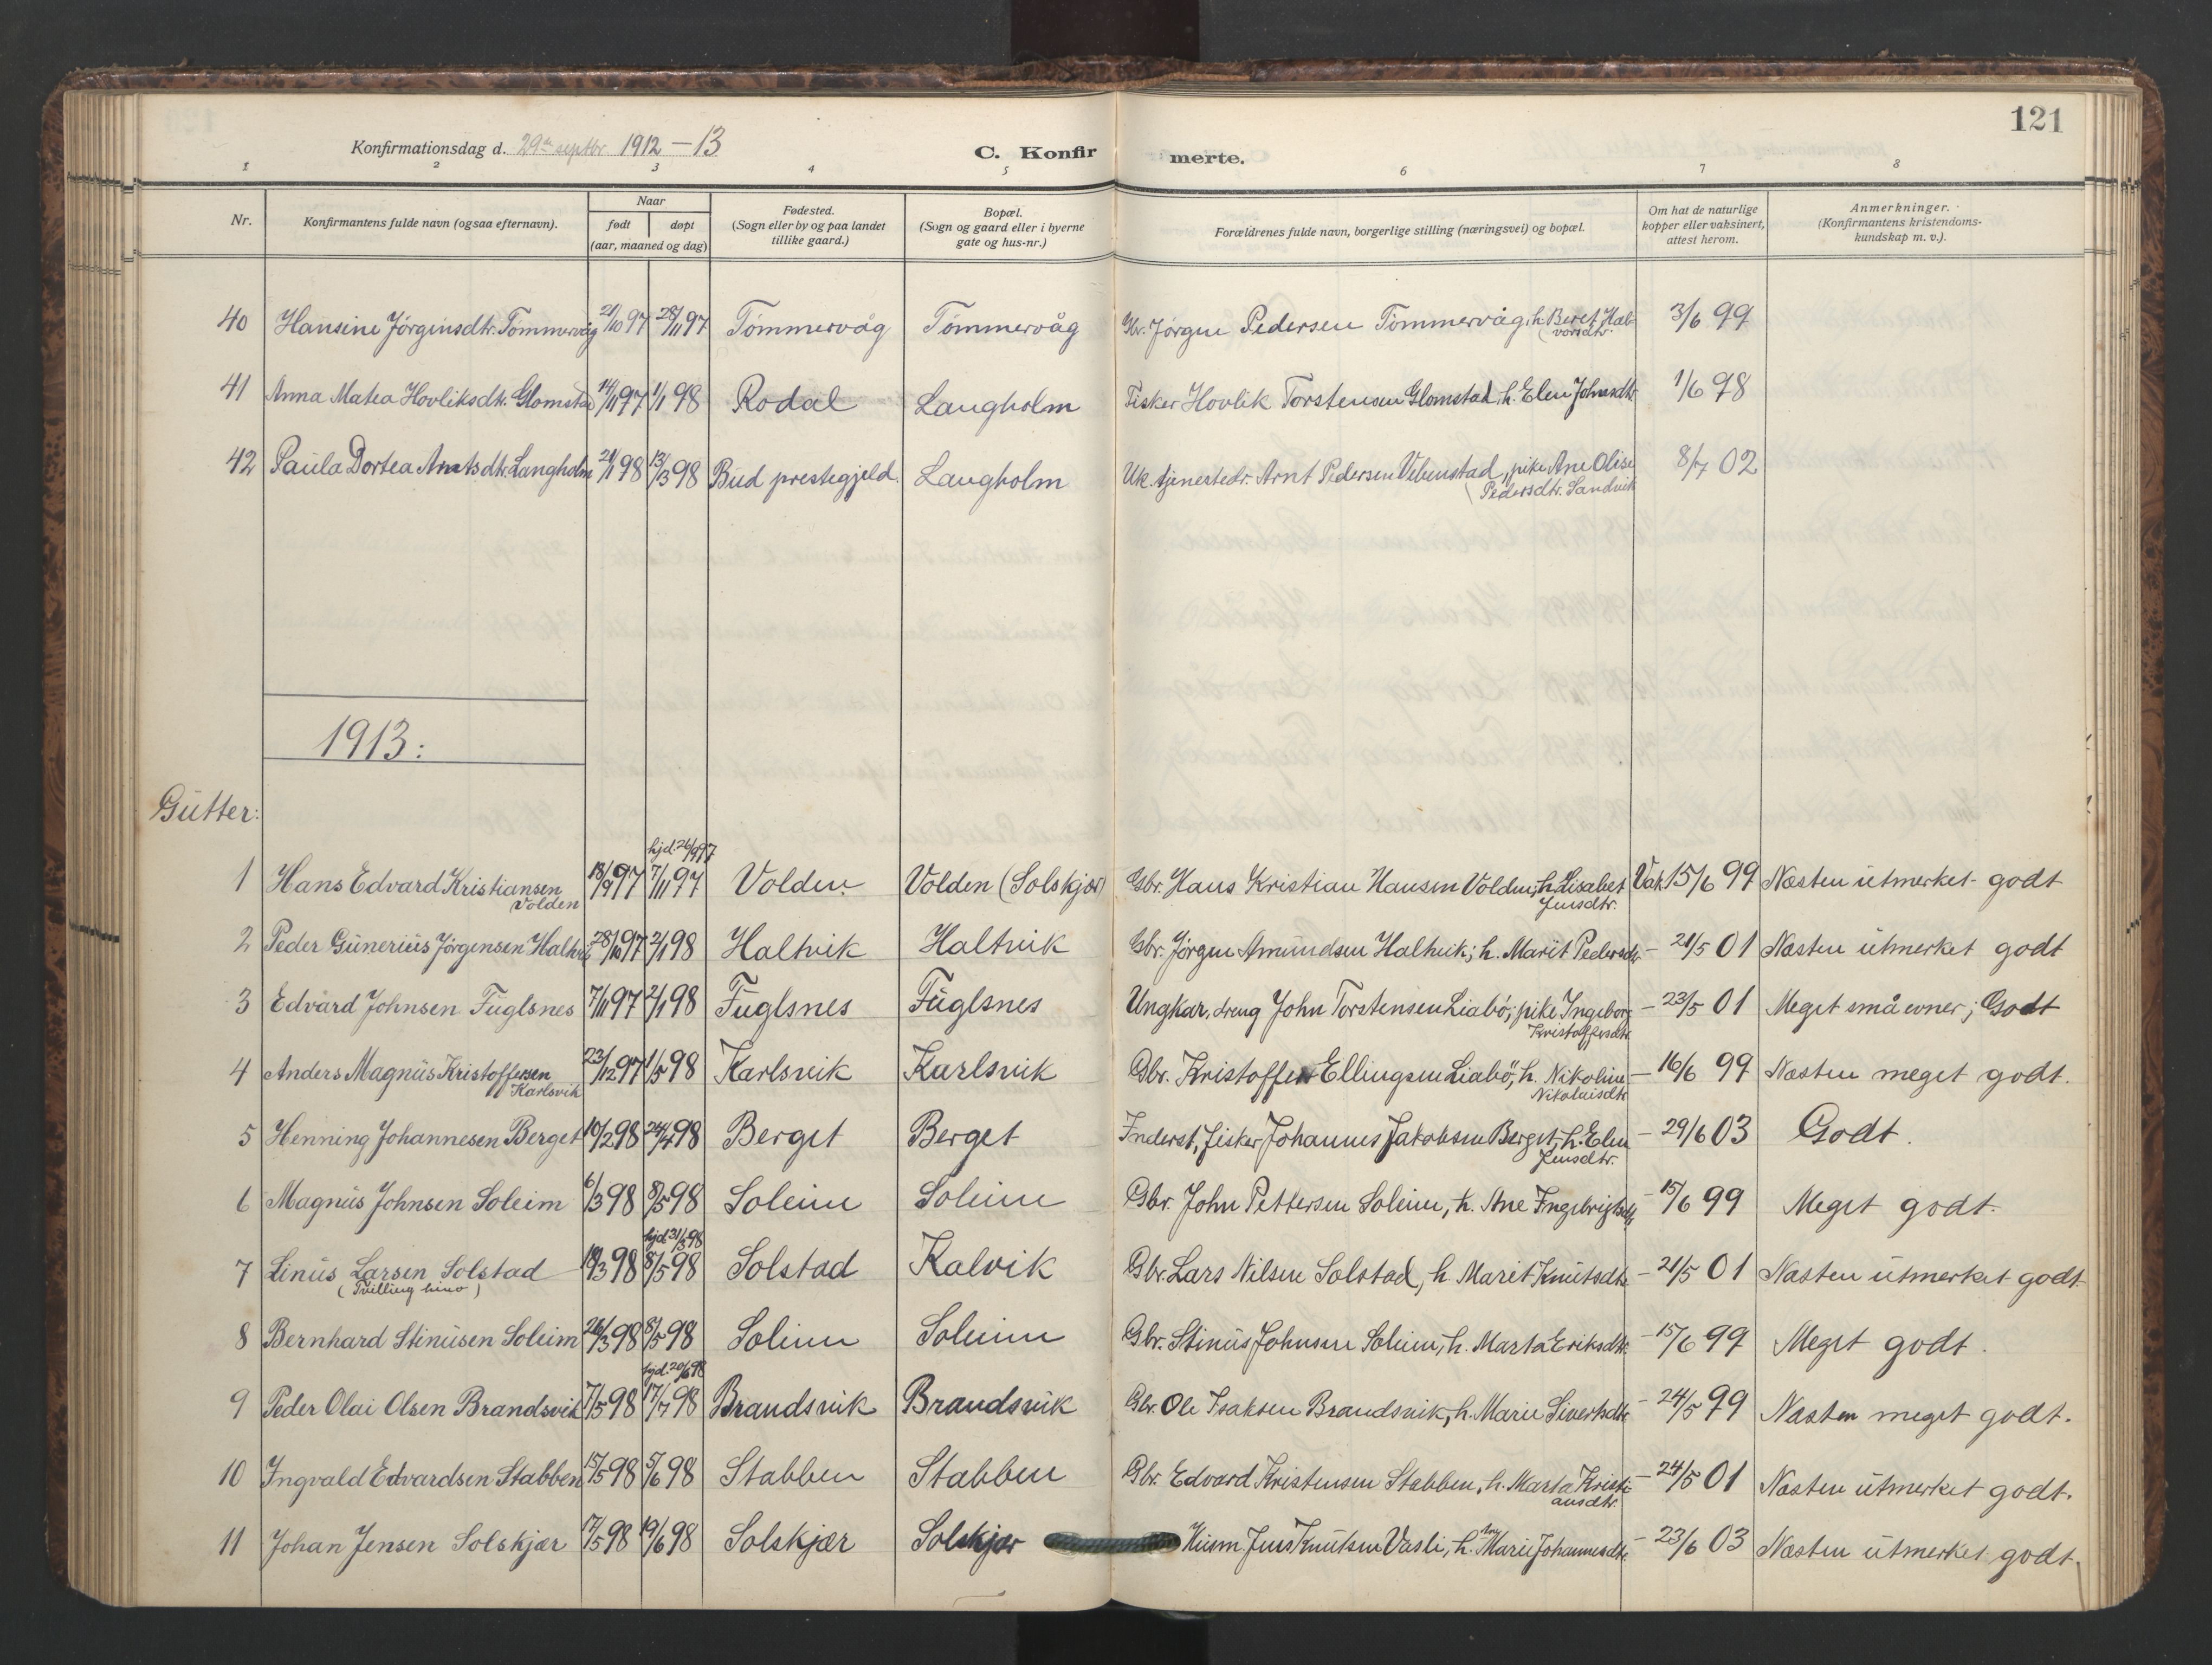 121
Konfirmationsdag d. 29de septbr 1912-13
C. Konfir merte.
1 2 3 4 5 6 7 8
Nr.
Konfirmantens fulde navn (ogsaa efternavn).
Naar
født døpt
(aar, maaned og dag)
Fødested.
(Sogn eller by og paa landet
tillike gaard.)
Bopæl.
(Sogn og gaard eller i byerne
gate og hus-nr.)
Forældrenes fulde navn, borgerlige stilling (næringsvei) og bopæl.
Om hat de naturlige
kopper eller vaksinert,
attest herom.
Anmerkninger.
(Konfirmantens kristendoms-
kundskap m. v.).
40 Hansine Jörginsdtr. Tömmervåg 21/10 97 28/11 97 Tömmervåg Tömmervåg Gbr. Jörgen Pedersen Tömmervåg, h. Beret Hal- 3/6 99
vorsdtr.
41 Anna Matea Hovliksdtr. Glomstad 14/11 97 1/1 98 Rodal Langholm Fisker Hovlik Torstensen Glomstad, h. Elen Johnsdtr 1/6 98
42 Paula Dortea Arntsdtr. Langholm 21/1 98 13/3 98 Bud prestegjeld. Langholm Uk. tjenestedr. Arnt Pedersen Vebenstad, pike Ane Olise 8/7 02
Pedersdtr. Sandvik
1913:
Gutter:
hjd. 26/9 97
1 Hans Edvard Kristiansen 18/9 97 7/11 97 Volden Volden (Solskjær) Gbr. Hans Kristian Hansen Volden, h. Lisabet Vak. 15/6 99 Næsten utmerket godt
Volden Jensdtr.
2 Peder Gunerius Jörgensen Haltvik 28/10 97 2/1 98 Haltvik Haltvik Gbr. Jörgen Amundsen Haltvik; h. Marit Pedersdtr. - 21/5 01 Næsten utmerket godt
3 Edvard Johnsen Fuglsnes 7/11 97 2/1 98 Fuglsnes Fuglsnes Ungkar, dreng John Torstensen Liabö; pike Ingeborg - 23/5 01 Meget små evner; Godt
Kristoffersdtr.
4 Anders Magnus Kristoffersen 23/12 97 1/5 98 Karlsvik Karlsvik Gbr. Kristoffer Ellingsen Liabö, h. Nikoline - 16/6 99 Næsten meget godt.
Karlsvik Nikolaisdtr
5 Henning Johannesen Berget 10/2 98 24/4 98 Berget Berget Inderst, fisker Johannes Jakobsen Berget, h. Elen - 29/6 03 Godt.
Jensdtr.
6 Magnus Johnsen Soleim 6/3 98 8/5 98 Soleim Soleim Gbr. John Pettersen Soleim, h. Ane Ingebrigtsdtr - 15/6 99 Meget godt.
hjd. 31/3 98
7 Linus Larsen Solstad 19/3 98 8/5 98 Solstad Kalvik Gbr. Lars Nilsen Solstad, h. Marit Knutsdtr - 21/5 01 Næsten utmerket godt
(Tvilling)
8 Bernhard Stinusen Soleim 26/3 98 8/5 98 Soleim Soleim Gbr. Stinus Johnsen Soleim, h. Marta Eriksdtr. - 15/6 99 Meget godt.
hjd. 20/6 98
9 Peder Olai Olsen Brandsvik 7/5 98 17/7 98 Brandsvik Brandsvik Gbr. Ole Isaksen Brandsvik, h. Marie Sivertsdtr - 24/5 99 Næsten meget godt.
10 Ingvald Edvardsen Stabben 15/5 98 5/6 98 Stabben Stabben Gbr. Edvard Kristensen Stabben, h. Marta Kristi- - 24/5 01 Næsten utmerket godt.
ansdtr.
11 Johan Jensen Solskjær 17/5 98 19/6 98 Solskjær Solskjær Husm Jens Knutsen Vasli, h. Marie Johannesdtr. - 23/6 03 Næsten utmerket godt.